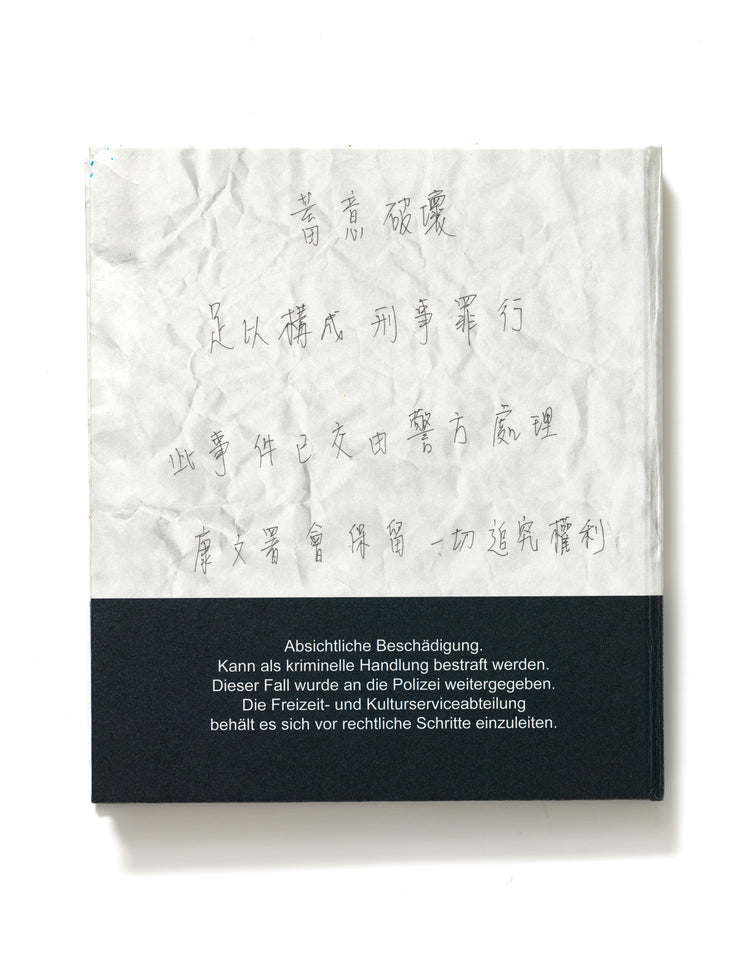 蓄意破壞
足以構成刑事罪行
此事件已交由警方處理
康文署會保留一切追究權利
Absichtliche Beschädigung.
Kann als kriminelle Handlung bestraft werden.
Dieser Fall wurde an die Polizei weitergegeben.
Die Freizeit- und Kulturserviceabteilung
behält es sich vor rechtliche Schritte einzuleiten.